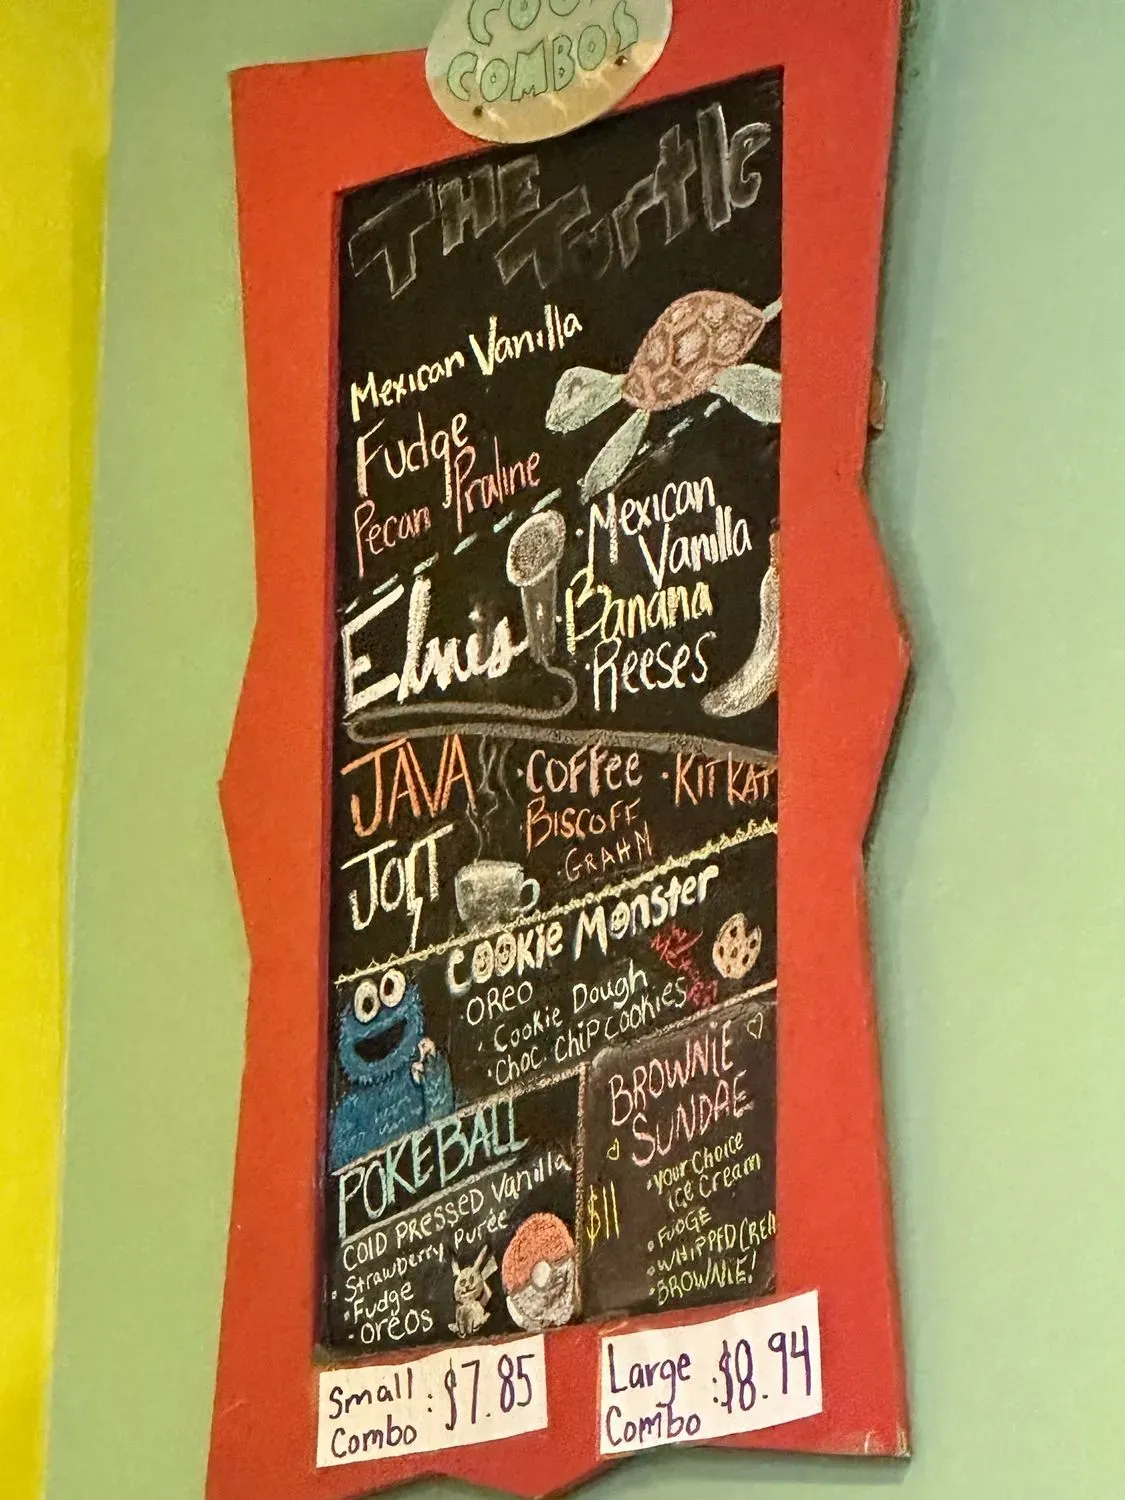 COOL
COMBOS
THE
Turtle
Mexican Vanilla
Fudge
Pecan Praline
Elvis
· Mexican
Vanilla
· Banana
· Reeses
JAVA
JOLT
· COFFEE
· BISCOFF
· GRAHM
· KITKAT
COOKIE MONSTER
· OREO
· Cookie Dough
· Choc. Chip Cookies
POKEBALL
COLD PRESSED Vanilla
· Strawberry Purée
· Fudge
· oreos
BROWNIE
SUNDAE
$11
· Your Choice
Ice Cream
· FUDGE
· WHIPPED CREA
· BROWNIE!
Small : $7.85
Combo
Large : $8.94
Combo